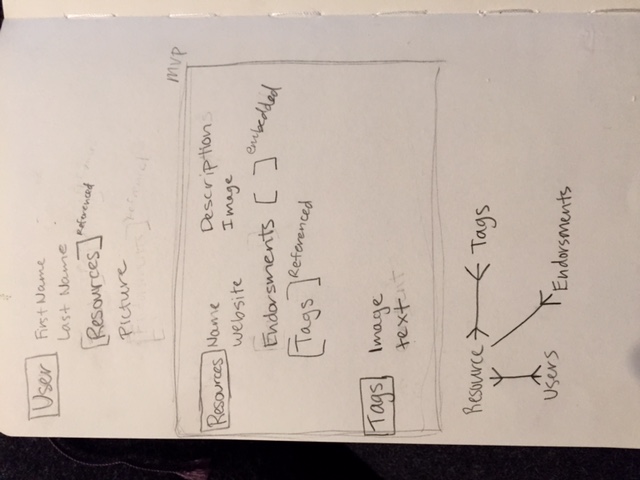 User First Name
Last Name
[Resources] Referenced
Picture
MVP
Resources Name Description
website Image
Endorsments [ ] embedded
[Tags] Referenced
Tags Image
text
Resource Tags
Users Endorsments